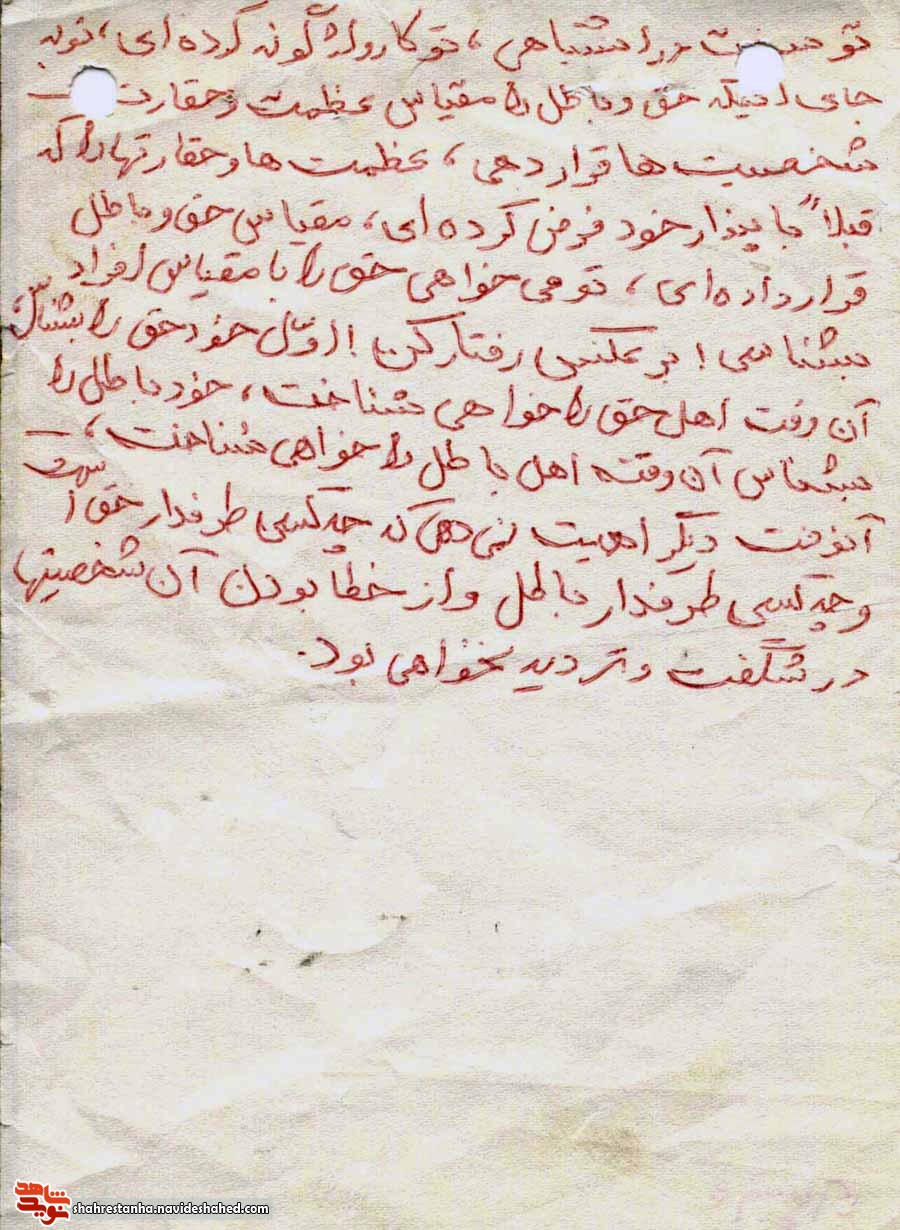 تو سخت در اشتباهی، تو کار واژگونه کرده‌ای، تو به
جای اینکه حق و باطل را مقیاس عظمت و حقارت
شخصیت ها قرار دهی، عظمت ها و حقارتها را که
قبلاً با پندار خود فرض کرده ای، مقیاس حق و باطل
قرار داده‌ای، تو می خواهی حق را با مقیاس افراد
بشناسی! بر عکس رفتار کن! اول خود حق را بشناس،
آن وقت اهل حق را خواهی شناخت، خود باطل را
بشناس آن وقت اهل باطل را خواهی شناخت،
آنوقت دیگر اهمیت نمی دهی که چه کسی طرفدار حق است
و چه کسی طرفدار باطل و از خطا بودن آن شخصیتها
در شگفت و تردید نخواهی بود.
نوید شاهد
shahrestanha.navideshahed.com